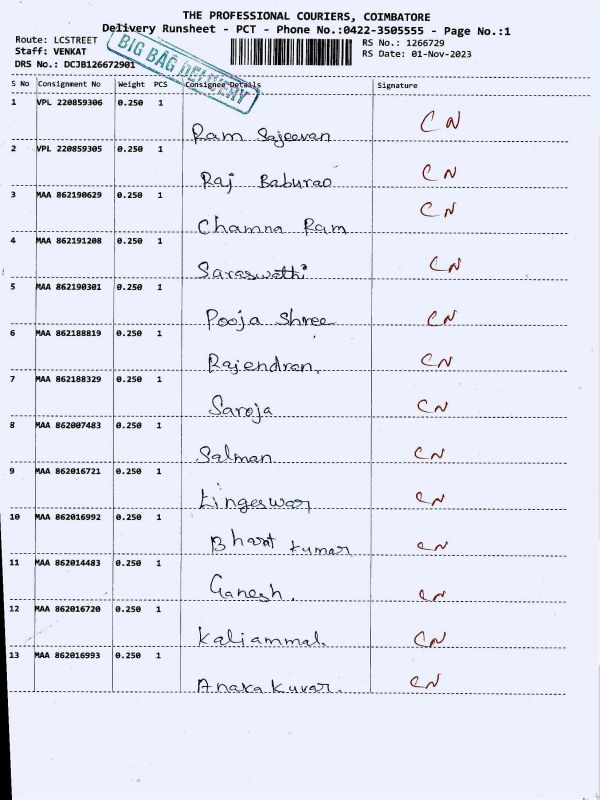 THE PROFESSIONAL COURIERS, COIMBATORE
Delivery Runsheet - PCT - Phone No.:0422-3505555 - Page No.:1
Route: LCSTREET
Staff: VENKAT
DRS No.: DCJB126672901
BIG BAG DELIVERY
RS No.: 1266729
RS Date: 01-Nov-2023
S No Consignment No Weight PCS Consignee Details Signature
1 VPL 220859306 0.250 1
Ram Sajeevan CN
2 VPL 220859305 0.250 1
Raj Baburao CN
3 MAA 862190629 0.250 1
Chamna Ram CN
4 MAA 862191208 0.250 1
Saraswathi CN
5 MAA 862190301 0.250 1
Pooja Shree CN
6 MAA 862188819 0.250 1
Rajendran. CN
7 MAA 862188329 0.250 1
Saroja CN
8 MAA 862007483 0.250 1
Salman CN
9 MAA 862016721 0.250 1
Lingeswar CN
10 MAA 862016992 0.250 1
Bharat kumar CN
11 MAA 862014483 0.250 1
Ganesh. CN
12 MAA 862016720 0.250 1
Kaliammal. CN
13 MAA 862016993 0.250 1
CN